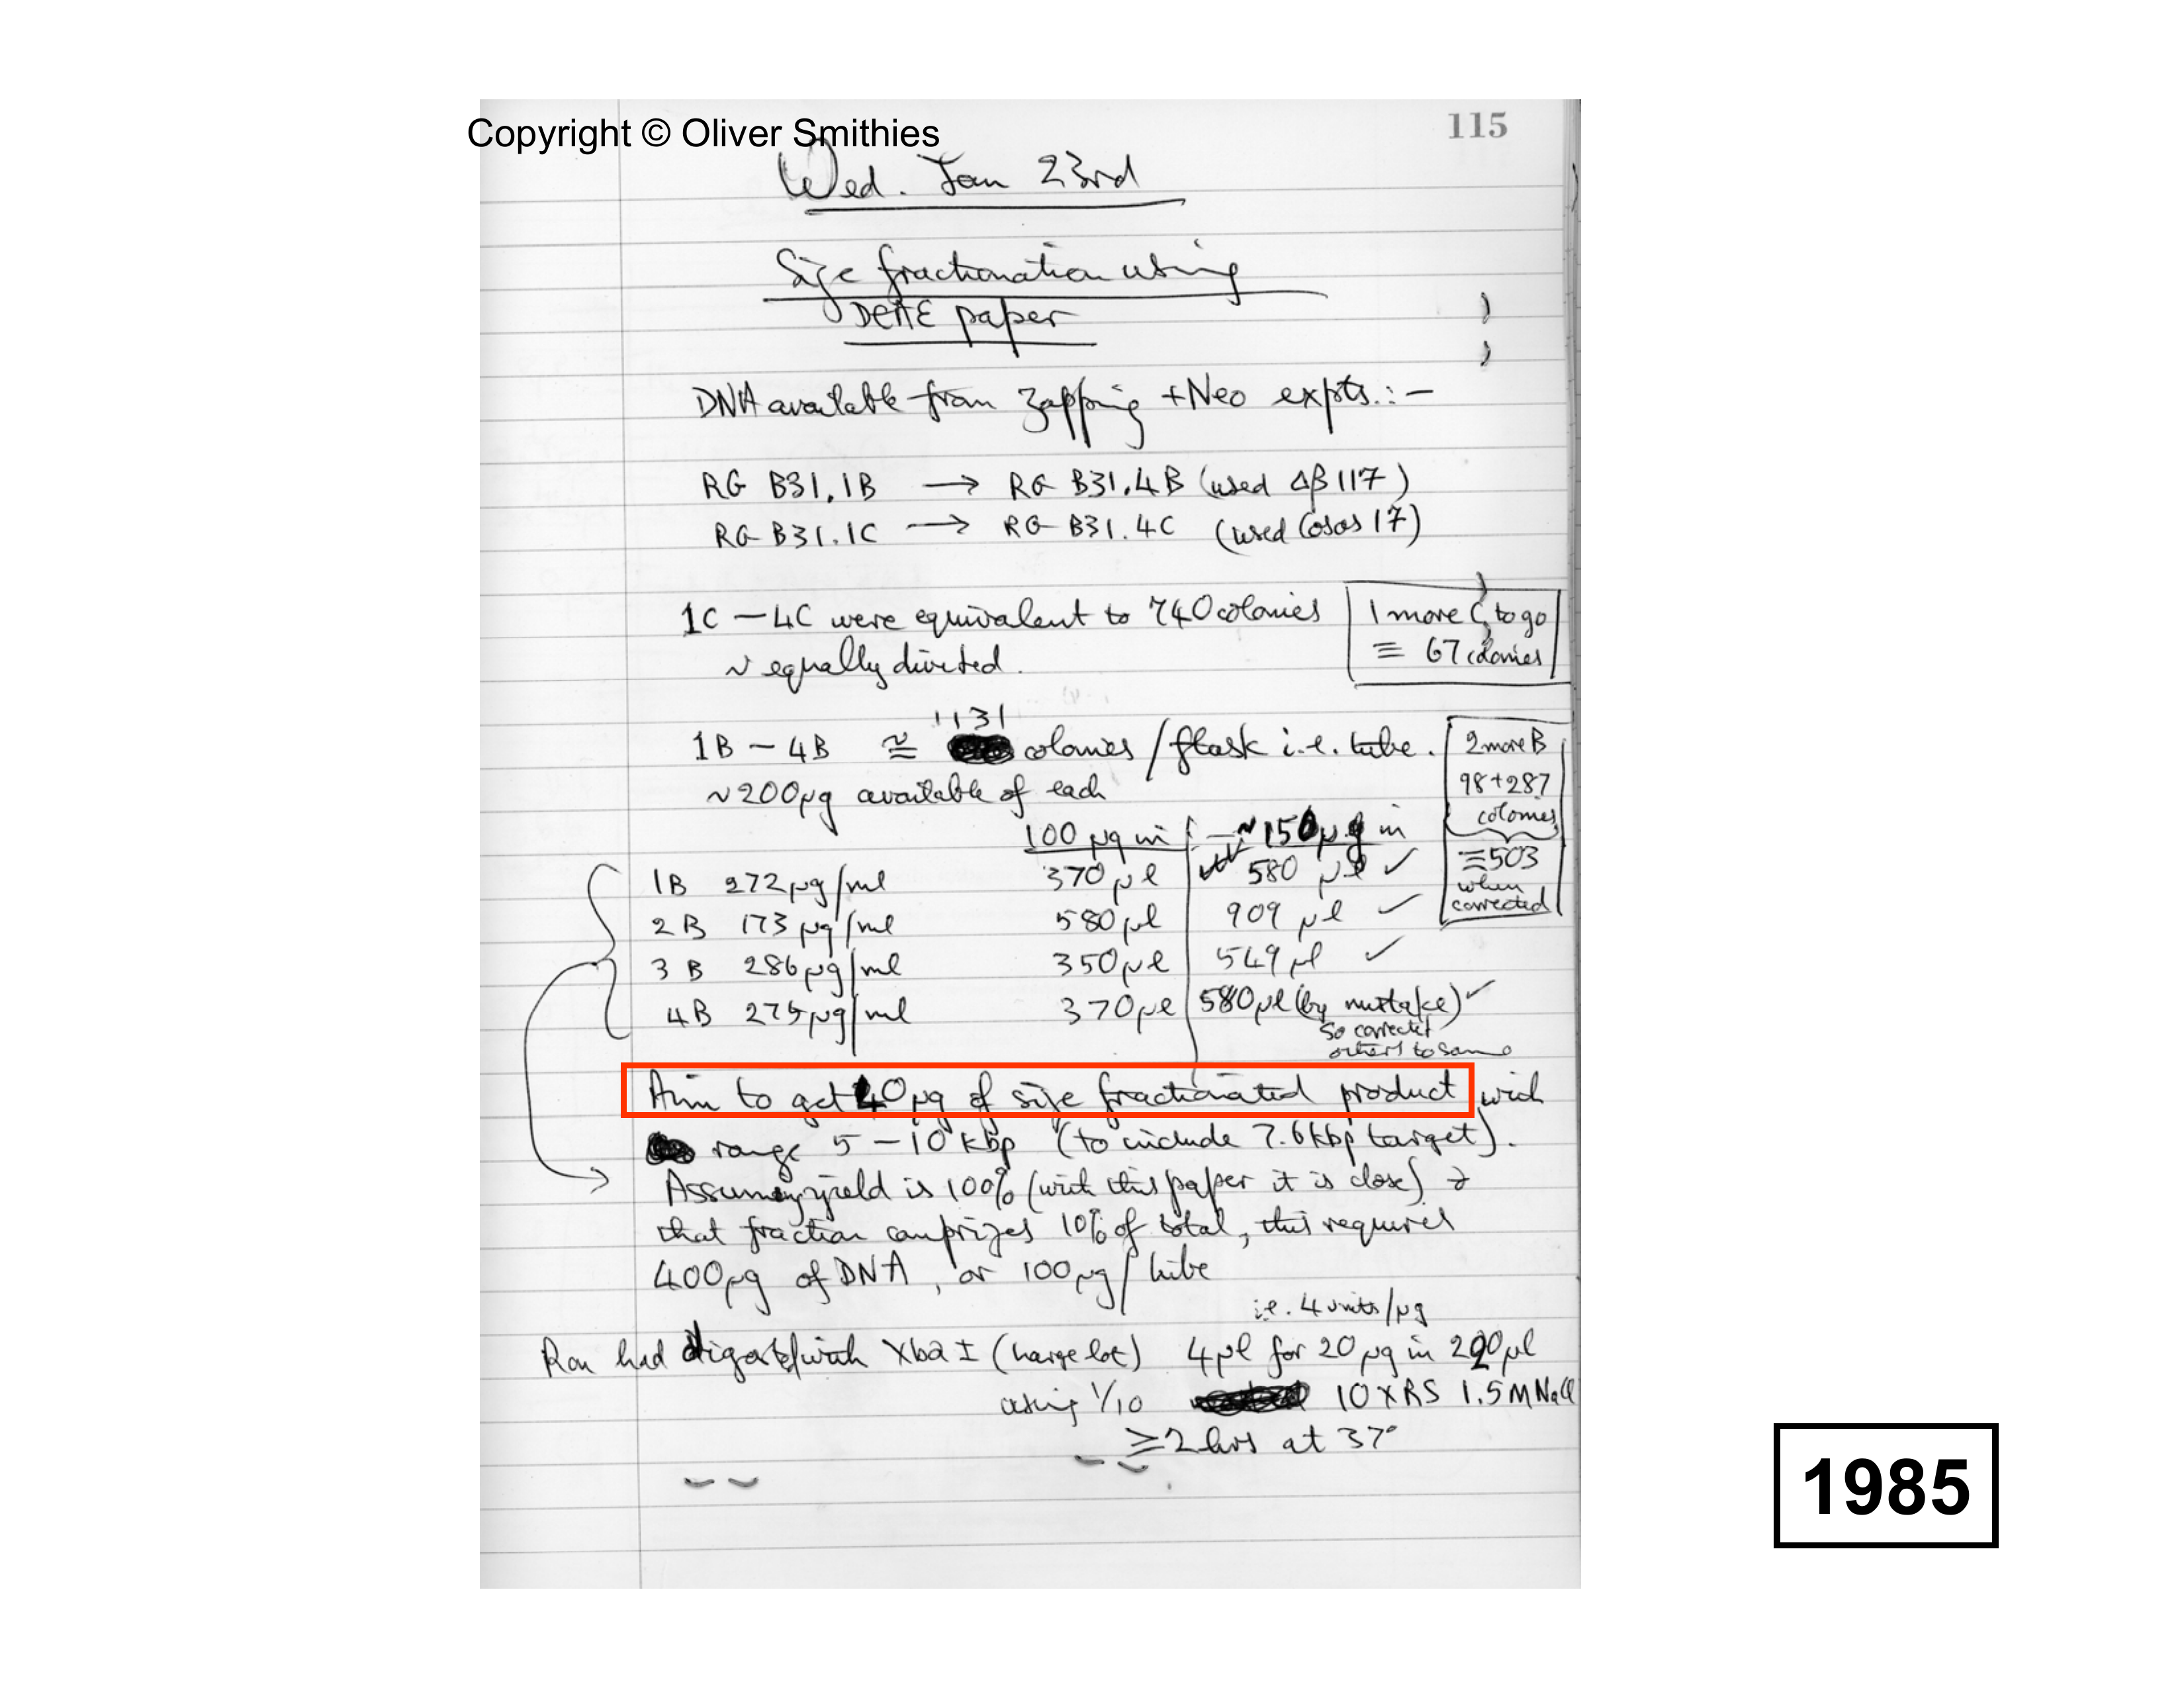 Copyright © Oliver Smithies
115
Wed. Jan 23rd
Size fractionation using
DEAE paper
DNA available from zapping +Neo expts.:-
RG B31.1B → RG B31.4B (used Δβ117)
RG B31.1C → RG B31.4C (used Cosos 17)
1C - 4C were equivalent to 740 colonies
~ equally divided.
1 more C to go
≡ 67 colonies
1B - 4B ≅ 1131 colonies / flask i.e. tube.
~200µg available of each
2 more B
98+287
colonies
≡503
when
corrected
100 µg in ~150µg in
1B 272µg/ml 370µl 580 µl ✓
2B 173µg/ml 580µl 909 µl ✓
3B 286µg/ml 350µl 549µl ✓
4B 275µg/ml 370µl 580µl (by mistake) ✓
so corrected
others to same
Aim to get 40µg of size fractionated product with
range 5-10 kbp (to include 7.6kbp target).
Assuming yield is 100% (with this paper it is close) &
that fraction comprizes 10% of total, this requires
400µg of DNA, or 100µg/tube
i.e. 4 units/µg
Ron had digested with XbaI (large lot) 4µl for 20µg in 200µl
using 1/10 10xRS 1.5M NaCl
≥2 hrs at 37°
1985